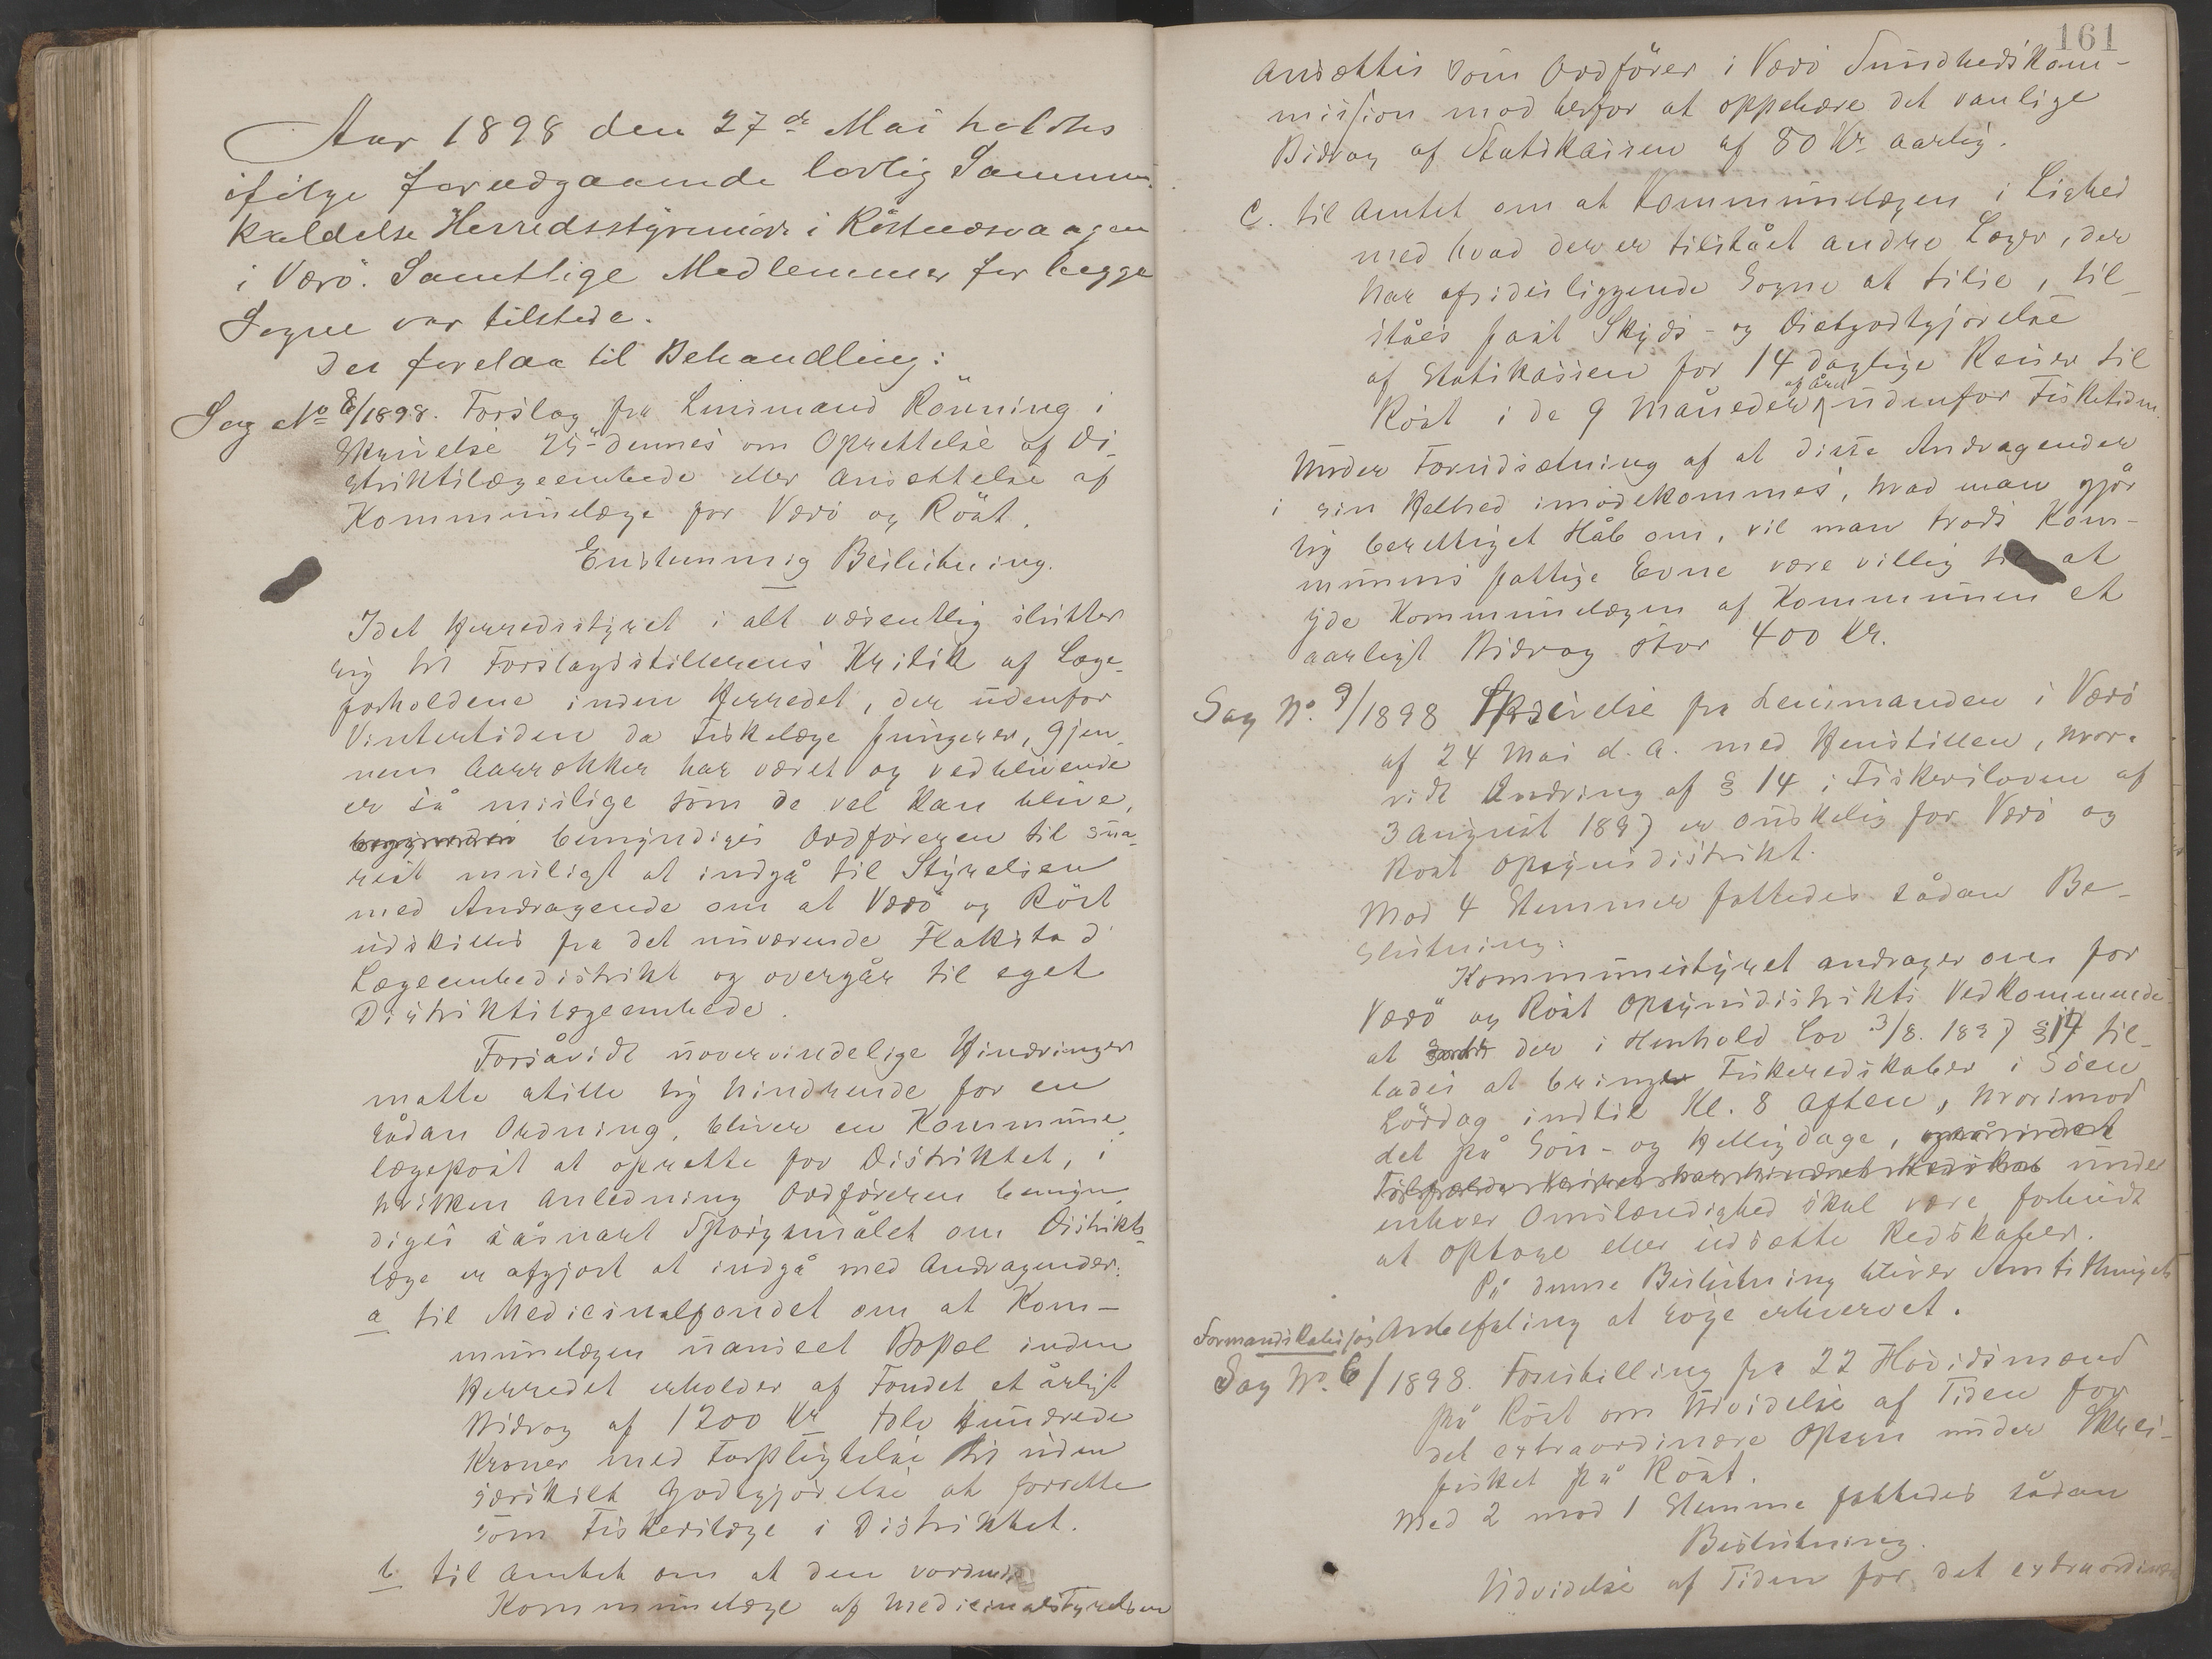 Aar 1898 den 27de Mai holdtes
ifölge forudgaaende lovlig Sammen-
kaldelse Herredsstyremöde i Röstnæsvaagen
i Værö. Samtlige Medlemmer for begge
Sogne var tilstede.
Der forelaa til Behandling:
Sag No 8/1898. Forslag fra Lensmand Rönning i
Skrivelse 25 dennes om Oprettelse af Di-
striktslægeembede eller Ansettelse af
Kommunelæge for Værö og Röst.
Enstemmig Beslutning.
Idet Herredsstyret i alt væsentlig slutter
sig til Forslagsstillerens Kritik af Læge-
forholdene inden Herredet, der udenfor
Vintertiden da Fiskelæge fungerer, gjen-
nem Aarrækker har været og vedblivende
er så mislige som de vel kan blive,
bemyndiges Ordföreren til sna-
rest muligt at indgå til Styrelsen
med Andragende om at Værö og Röst
udskilles fra det nuværende Flakstad
Lægeembedistrikt og overgår til eget
Distriktslægeembede.
Forsåvidt uovervindelige Hindringer
måtte stille sig hindrende for en
sådan Ordning, bliver en Kommune-
lægepost at oprette for Distriktet, i
hvilken Anledning Ordföreren bemyn-
diges såsnart Spörgsmålet om Distrikts-
læge er afgjort at indgå med Andragender:
a til Medicinalfondet om at Kom-
munelægen uanseet Bopæl inden
Herredet erholder af Fondet et årligt
Bidrag af 1200 Kr tolv Hundrede
Kroner med Forpligtelse til uden
særskilt Godtgjörelse at forrette
som Fiskerilæge i Distriktet.
b til Amtet om at den vordende
Kommunelæge af Medicinalstyrelsen
161
Ansættes som Ordförer i Værö Sundhedskom-
mission mod derfor at oppebære det vanlige
Bidrag af Statskassen af 80 Kr aarlig.
C. til Amtet om at Kommunelægen i Lighed
med hvad der er tilstået andre Læger, der
har afsides liggende Sogne at tilse, til-
ståes fast Skyds- og Diætgodtgjörelse
af Statskassen for 14 daglige Reiser til
Röst i de 9 Måneder af året udenfor Fisketiden.
Under Forudsætning af at disse Andragender
i sin Helhed imödekommes, hvad man gjör
sig berettiget Håb om, vil man trods Kom-
munens fattige Evne være villig til at
yde Kommunelægen af Kommunen et
aarligt Bidrag stor 400 Kr.
Sag No. 9/1898 Skrivelse fra Lensmanden i Værö
af 24 Mai d. A. med Henstillen, hvor-
vidt Ændring af § 14 i Fiskeriloven af
3 August 1897 er önskelig for Værö og
Röst Opsynsdistrikt.
Mod 4 Stemmer fattedes sådan Be-
slutning:
Kommunestyret andrager om for
Værö og Röst Opsynsdistrikts Vedkommende
at der i Henhold Lov 3/8. 1897 § 14 til-
lades at bringe Fiskeredskaber i Söen
Lördag indtil Kl. 8 Aften, hvorimod
det på Sön- og Helligdage, under
enhver Omstændighed skal være forbudt
at optage eller udsætte Redskaber.
På denne Beslutning bliver Amtsthingets
Anbefaling at söge erhvervet.
Formandskabssag
Sag No. 6/1898. Forestilling fra 22 Hövidsmænd
på Röst om Udvidelse af Tiden for
det extraordinære Opsyn under Skrei-
fisket på Röst.
Med 2 mod 1 Stemme fattedes sådan
Beslutning.
Udvidelse af Tiden for det extraordinære